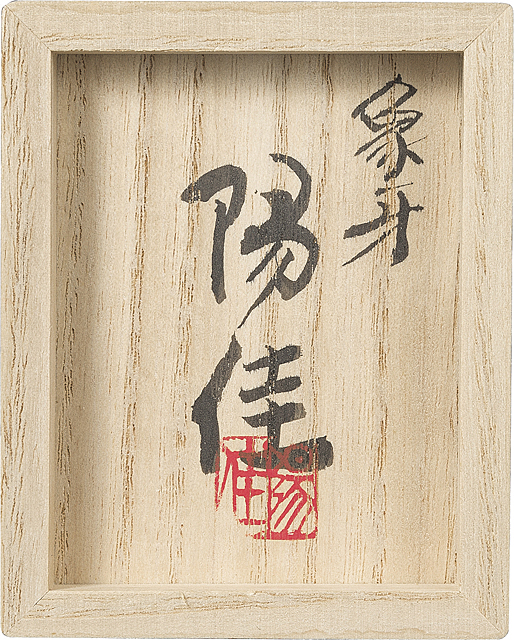 象牙
陽佳
陽佳